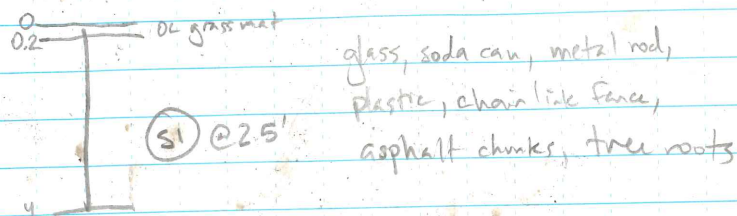 0
0.2 OL grass mat
glass, soda can, metal rod,
plastic, chain link fence,
S1 @2.5'
asphalt chunks, tree roots
4